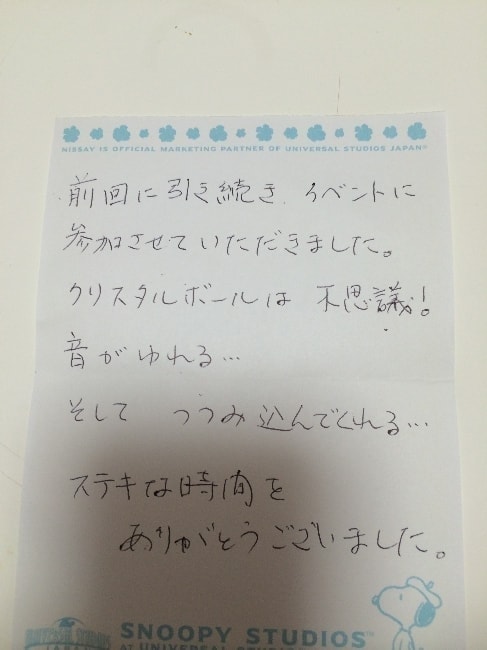 NISSAY IS OFFICIAL MARKETING PARTNER OF UNIVERSAL STUDIOS JAPAN
前回に引き続き、イベントに
参加させていただきました。
クリスタルボールは 不思議!
音がゆれる…
そして つつみ込んでくれる…
ステキな時間を
ありがとうございました。
UNIVERSAL STUDIOS
JAPAN
SNOOPY STUDIOS™
AT UNIVERSAL STUDIOS